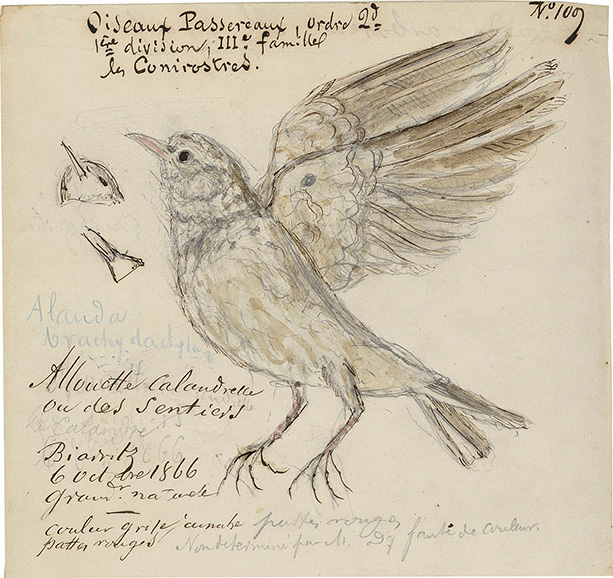 Oiseaux Passereaux, ordre 2d
No. 109
1ère division, IIIe famille
les Conirostres.
Alauda
brachydactyla
Allouette Calandrelle
ou des Sentiers
la Calandre
Biarritz
6 octobre 1866
grandr. naturelle
couleur grise jaunatre pattes rouges
pattes rouges Non déterminé par M. Dy faute de couleur.